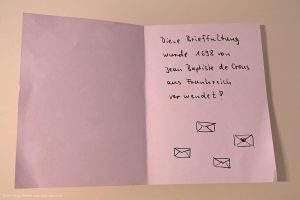 Diese Brieffaltung
wurde 1698 von
Jean Baptiste de Crous
aus Frankreich
verwendet!